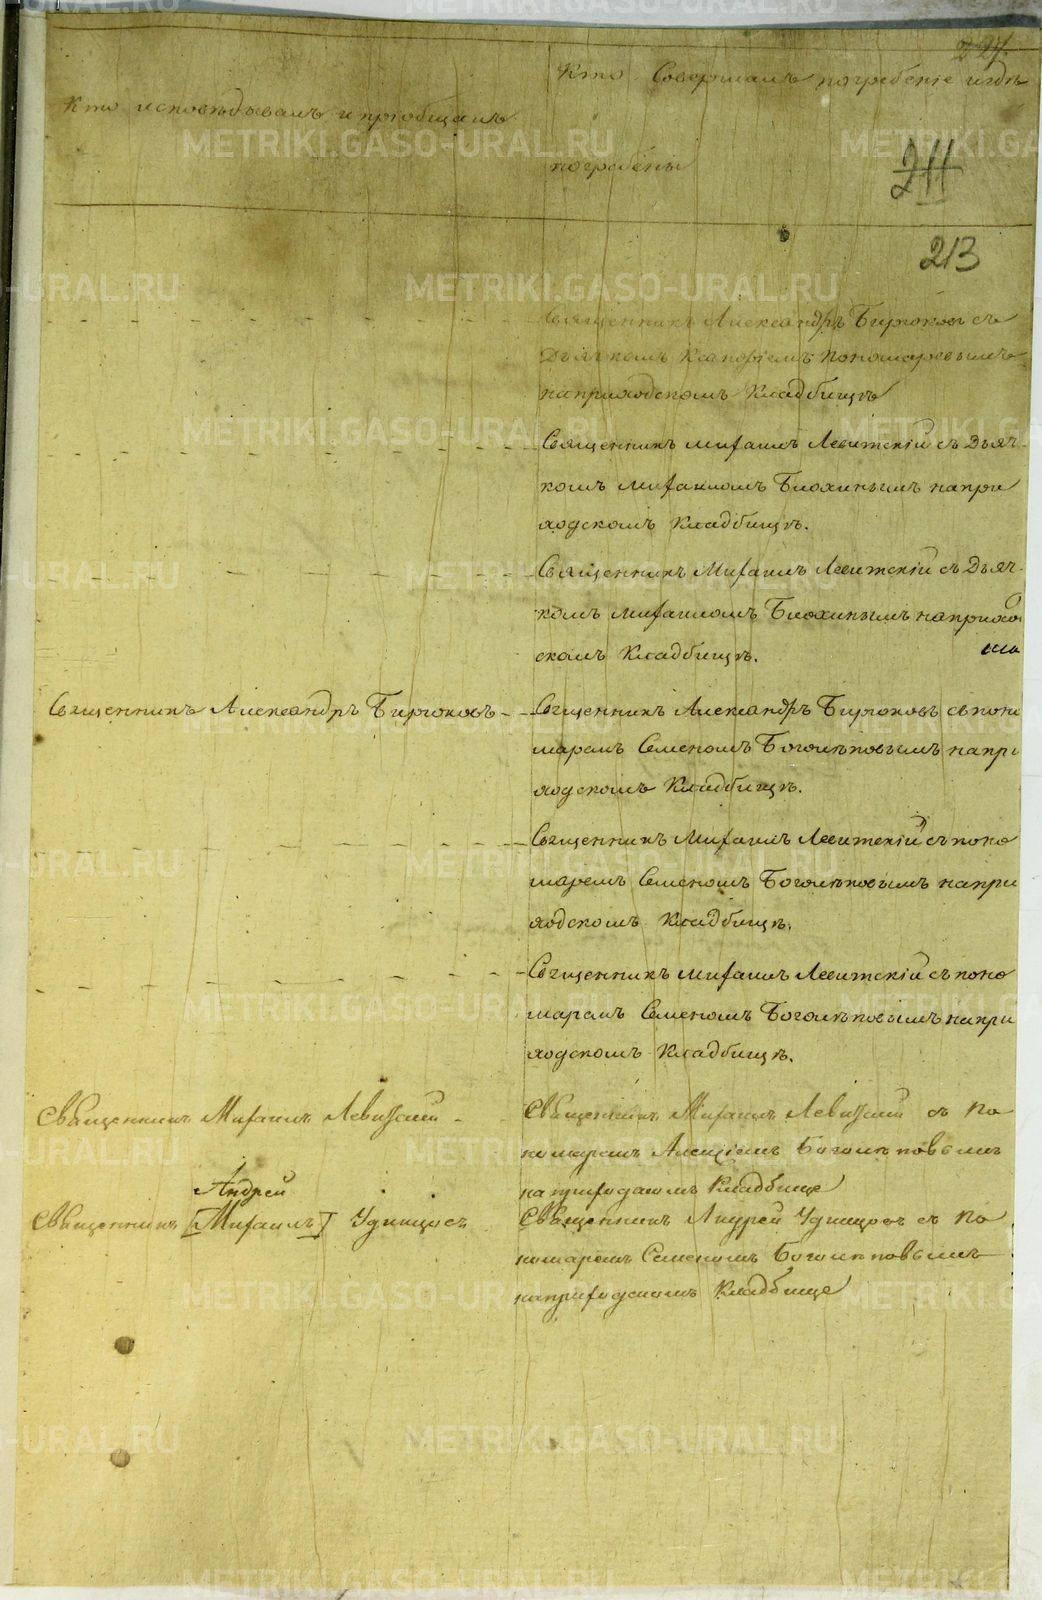 227.
Кто исповѣдывалъ и пріобщалъ
Кто Совершалъ погребеніе и гдѣ
погребены
211
213
Священникъ Александръ Бирюковъ съ
Дьячкомъ Пономаревымъ
на приходскомъ Кладбищѣ
Священникъ Михаилъ Левитскій съ Дьяч-
комъ Михаиломъ Блохинымъ на при
ходскомъ Кладбищѣ.
Священникъ Михаилъ Левитскій съ Дьяч-
комъ Михаиломъ Блохинымъ на приход
скомъ Кладбищѣ.
Священникъ Александръ Бирюковъ
Священникъ Александръ Бирюковъ съ поно
маремъ Семеномъ Боголѣповымъ на при
ходскомъ Кладбищѣ.
Священникъ Михаилъ Левитскій съ поно
маремъ Семеномъ Боголѣповымъ на при
ходскомъ Кладбищѣ.
Священникъ Михаилъ Левитскій съ поно
маремъ Семеномъ Боголѣповымъ на при
ходскомъ Кладбищѣ.
Священникъ Михаилъ Левитскій
Священникъ Михаилъ Левитскій съ По
номаремъ Алексіемъ Боголѣповымъ
на приходскомъ Кладбище
Андрей
Священникъ [Михаилъ] Удинцовъ
Священникъ Андрей Удинцовъ съ По
номаремъ Семеномъ Боголѣповымъ
на приходскомъ Кладбище
METRIKI.GASO-URAL.RU